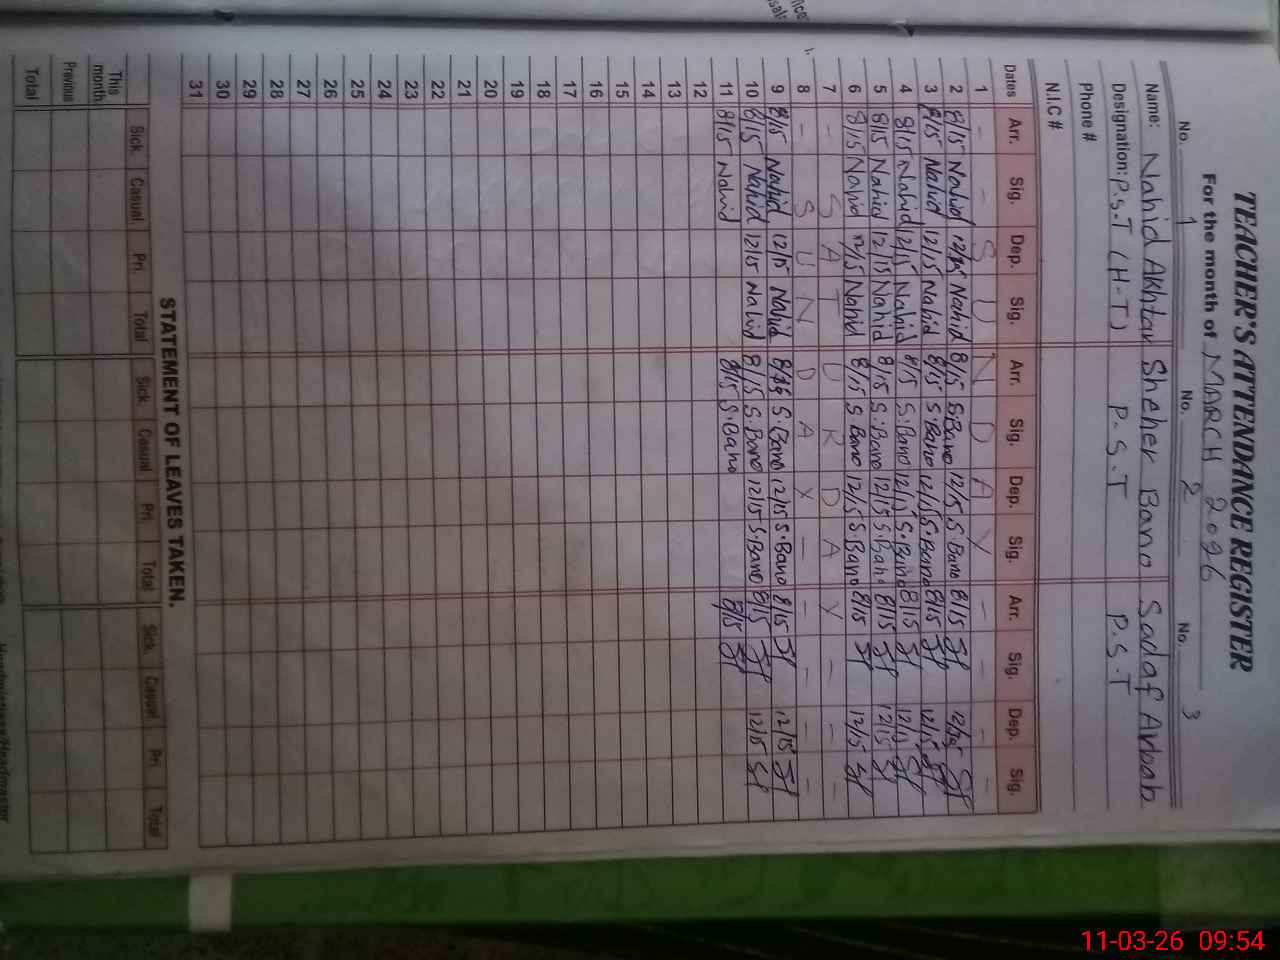 TEACHER'S ATTENDANCE REGISTER
For the month of MARCH 2026
No. 1 No. 2 No. 3
Name: Nahid Akhtar Sheher Bano Sadaf Arbab
Designation: P.S.T (H-T) P.S.T P.S.T
Phone #
N.I.C #
Dates Arr. Sig. Dep. Sig. Arr. Sig. Dep. Sig. Arr. Sig. Dep. Sig.
1 - - S U N D A Y - - - -
2 8/15 Nahid 12/25 Nahid 8/15 S.Bano 12/15 S.Bano 8/15 12/25
3 8/15 Nahid 12/15 Nahid 8/15 S.Bano 12/15 S.Bano 8/15 12/15
4 8/15 Nahid 12/15 Nahid 8/15 S.Bano 12/15 S.Bano 8/15 12/15
5 8/15 Nahid 12/15 Nahid 8/15 S.Bano 12/15 S.Bano 8/15 12/15
6 8/15 Nahid 12/15 Nahid 8/15 S.Bano 12/15 S.Bano 8/15 12/15
7 - S A T U R D A Y - - -
8 - S U N D A Y - - - - -
9 8/15 Nahid 12/15 Nahid 8/15 S.Bano 12/15 S.Bano 8/15 12/15
10 8/15 Nahid 12/15 Nahid 8/15 S.Bano 12/15 S.Bano 8/15 12/15
11 8/15 Nahid 8/15 S.Bano 8/15
12
13
14
15
16
17
18
19
20
21
22
23
24
25
26
27
28
29
30
31
STATEMENT OF LEAVES TAKEN.
Sick. Casual. Pri. Total Sick. Casual. Pri. Total Sick. Casual. Pri. Total
This month
Previous
Total
Headmistress/Headmaster
11-03-26 09:54